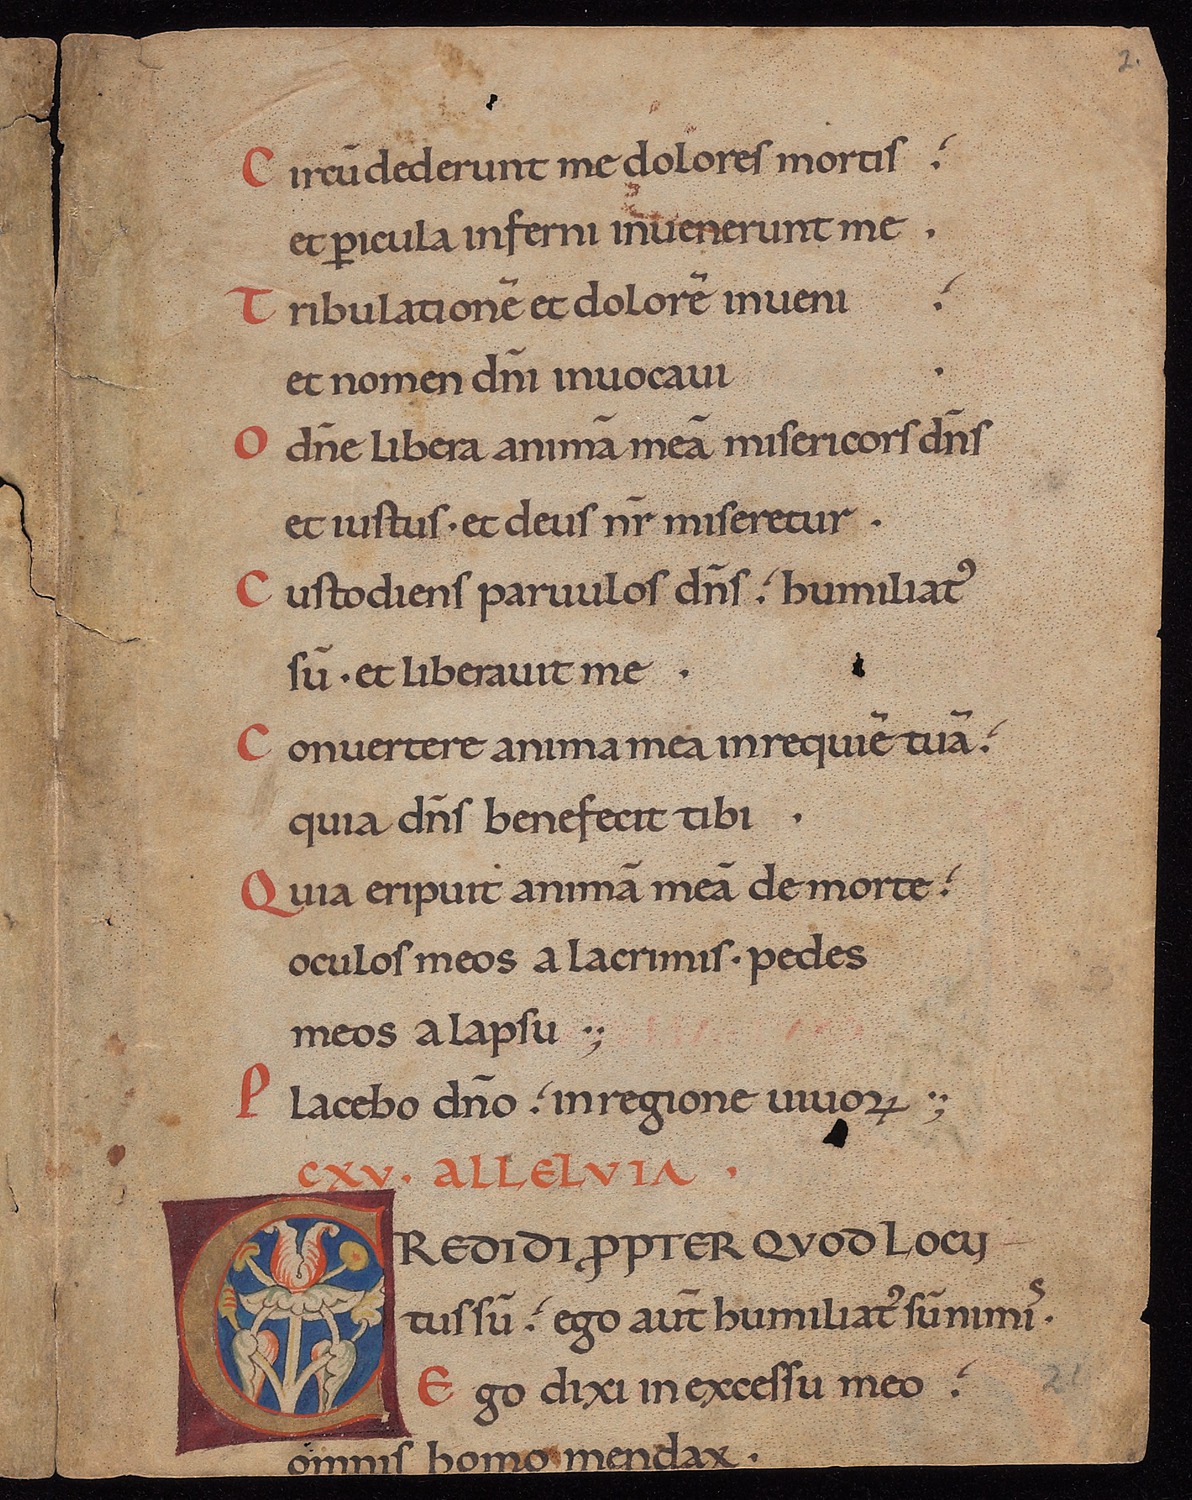 2.
Circū dederunt me dolores mortis
et ꝑicula inferni inuenerunt me .
Tribulationē et dolorē inueni
et nomen dñi inuocaui .
O dñe libera animā meā misericors dñs
et iustus · et deus nr̄ miseretur .
Custodiens paruulos dñs : humiliatꝰ
sū · et liberauit me .
Conuertere anima mea in requiē tuā :
quia dñs benefecit tibi .
Quia eripuit animā meā de morte :
oculos meos a lacrimis · pedes
meos a lapsu ·;
Placebo dño : in regione uiuoꝝ ·;
CXV . ALLELVIA .
CREDIDI ꝓPTER QVOD LOCU
tus sū : ego aūt humiliatꝰ sū nimis .
Ego dixi in excessu meo :
omnis homo mendax .